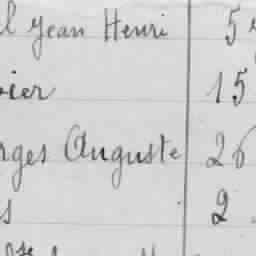 l Jean Henri 5
ier 15
rges Auguste 26
s 2